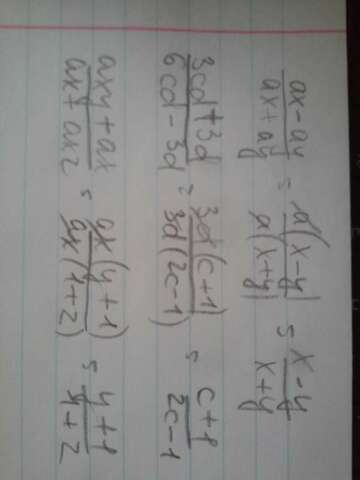 ax - ay / ax + ay = a(x - y) / a(x + y) = x - y / x + y
3cd + 3d / 6cd - 3d = 3d(c + 1) / 3d(2c - 1) = c + 1 / 2c - 1
axy + ax / ax + axz = ax(y + 1) / ax(1 + z) = y + 1 / 1 + z